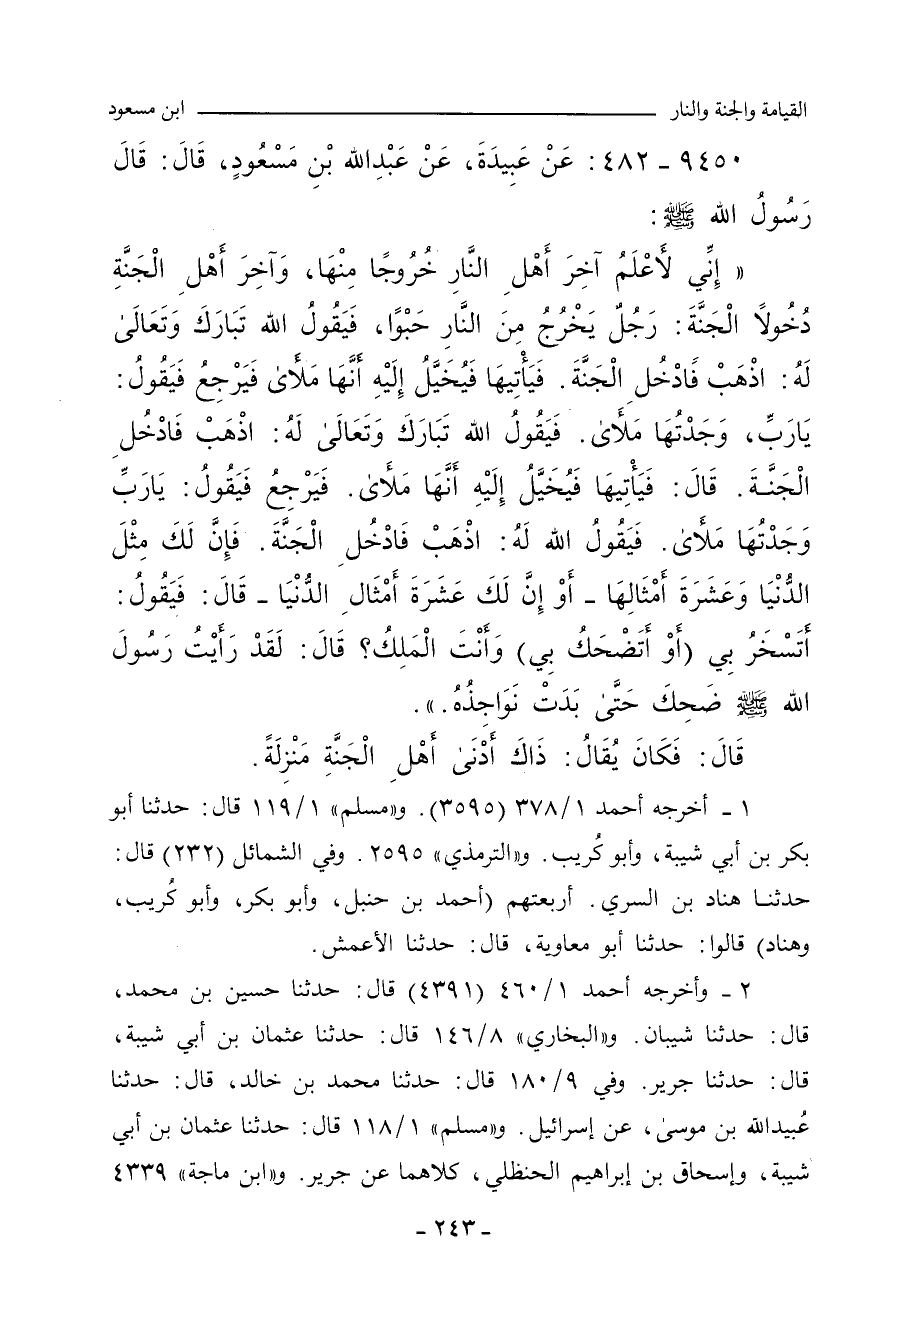 القيامة والجنة والنار ــــــ ابن مسعود
٩٤٥٠ ـ ٤٨٢ : عَنْ عَبِيدَةَ، عَنْ عَبْدِالله بْنِ مَسْعُودٍ، قَالَ: قَالَ
رَسُولُ الله ﷺ:
« إِنِّي لَأَعْلَمُ آخِرَ أَهْلِ النَّارِ خُرُوجًا مِنْهَا، وَآخِرَ أَهْلِ الْجَنَّةِ
دُخُولاً الْجَنَّةَ: رَجُلٌ يَخْرُجُ مِنَ النَّارِ حَبْوًا، فَيَقُولُ الله تَبَارَكَ وَتَعَالَىٰ
لَهُ: اذْهَبْ فَادْخُلِ الْجَنَّةَ. فَيَأْتِيهَا فَيُخَيَّلُ إِلَيْهِ أَنَّهَا مَلْأَىٰ فَيَرْجِعُ فَيَقُولُ:
يَارَبِّ، وَجَدْتُهَا مَلْأَىٰ. فَيَقُولُ الله تَبَارَكَ وَتَعَالَىٰ لَهُ: اذْهَبْ فَادْخُلِ
الْجَنَّةَ. قَالَ: فَيَأْتِيهَا فَيُخَيَّلُ إِلَيْهِ أَنَّهَا مَلْأَىٰ. فَيَرْجِعُ فَيَقُولُ: يَارَبِّ
وَجَدْتُهَا مَلْأَىٰ. فَيَقُولُ الله لَهُ: اذْهَبْ فَادْخُلِ الْجَنَّةَ. فَإِنَّ لَكَ مِثْلَ
الدُّنْيَا وَعَشَرَةَ أَمْثَالِهَا ـ أَوْ إِنَّ لَكَ عَشَرَةَ أَمْثَالِ الدُّنْيَا ـ قَالَ: فَيَقُولُ:
أَتَسْخَرُ بِي (أَوْ أَتَضْحَكُ بِي) وَأَنْتَ الْمَلِكُ؟ قَالَ: لَقَدْ رَأَيْتُ رَسُولَ
الله ﷺ ضَحِكَ حَتَّىٰ بَدَتْ نَوَاجِذُهُ.».
قَالَ: فَكَانَ يُقَالُ: ذَاكَ أَدْنَىٰ أَهْلِ الْجَنَّةِ مَنْزِلَةً.
١ ـ أخرجه أحمد ٣٧٨/١ (٣٥٩٥). و«مسلم» ١١٩/١ قال: حدثنا أبو
بكر بن أبي شيبة، وأبو كُريب. و«الترمذي» ٢٥٩٥. وفي الشمائل (٢٣٢) قال:
حدثنا هناد بن السري. أربعتهم (أحمد بن حنبل، وأبو بكر، وأبو كُريب،
وهناد) قالوا: حدثنا أبو معاوية، قال: حدثنا الأعمش.
٢ ـ وأخرجه أحمد ٤٦٠/١ (٤٣٩١) قال: حدثنا حسين بن محمد،
قال: حدثنا شيبان. و«البخاري» ١٤٦/٨ قال: حدثنا عثمان بن أبي شيبة،
قال: حدثنا جرير. وفي ١٨٠/٩ قال: حدثنا محمد بن خالد، قال: حدثنا
عُبيدالله بن موسىٰ، عن إسرائيل. و«مسلم» ١١٨/١ قال: حدثنا عثمان بن أبي
شيبة، وإسحاق بن إبراهيم الحنظلي، كلاهما عن جرير. و«ابن ماجة» ٤٣٣٩
ـ ٢٤٣ ـ